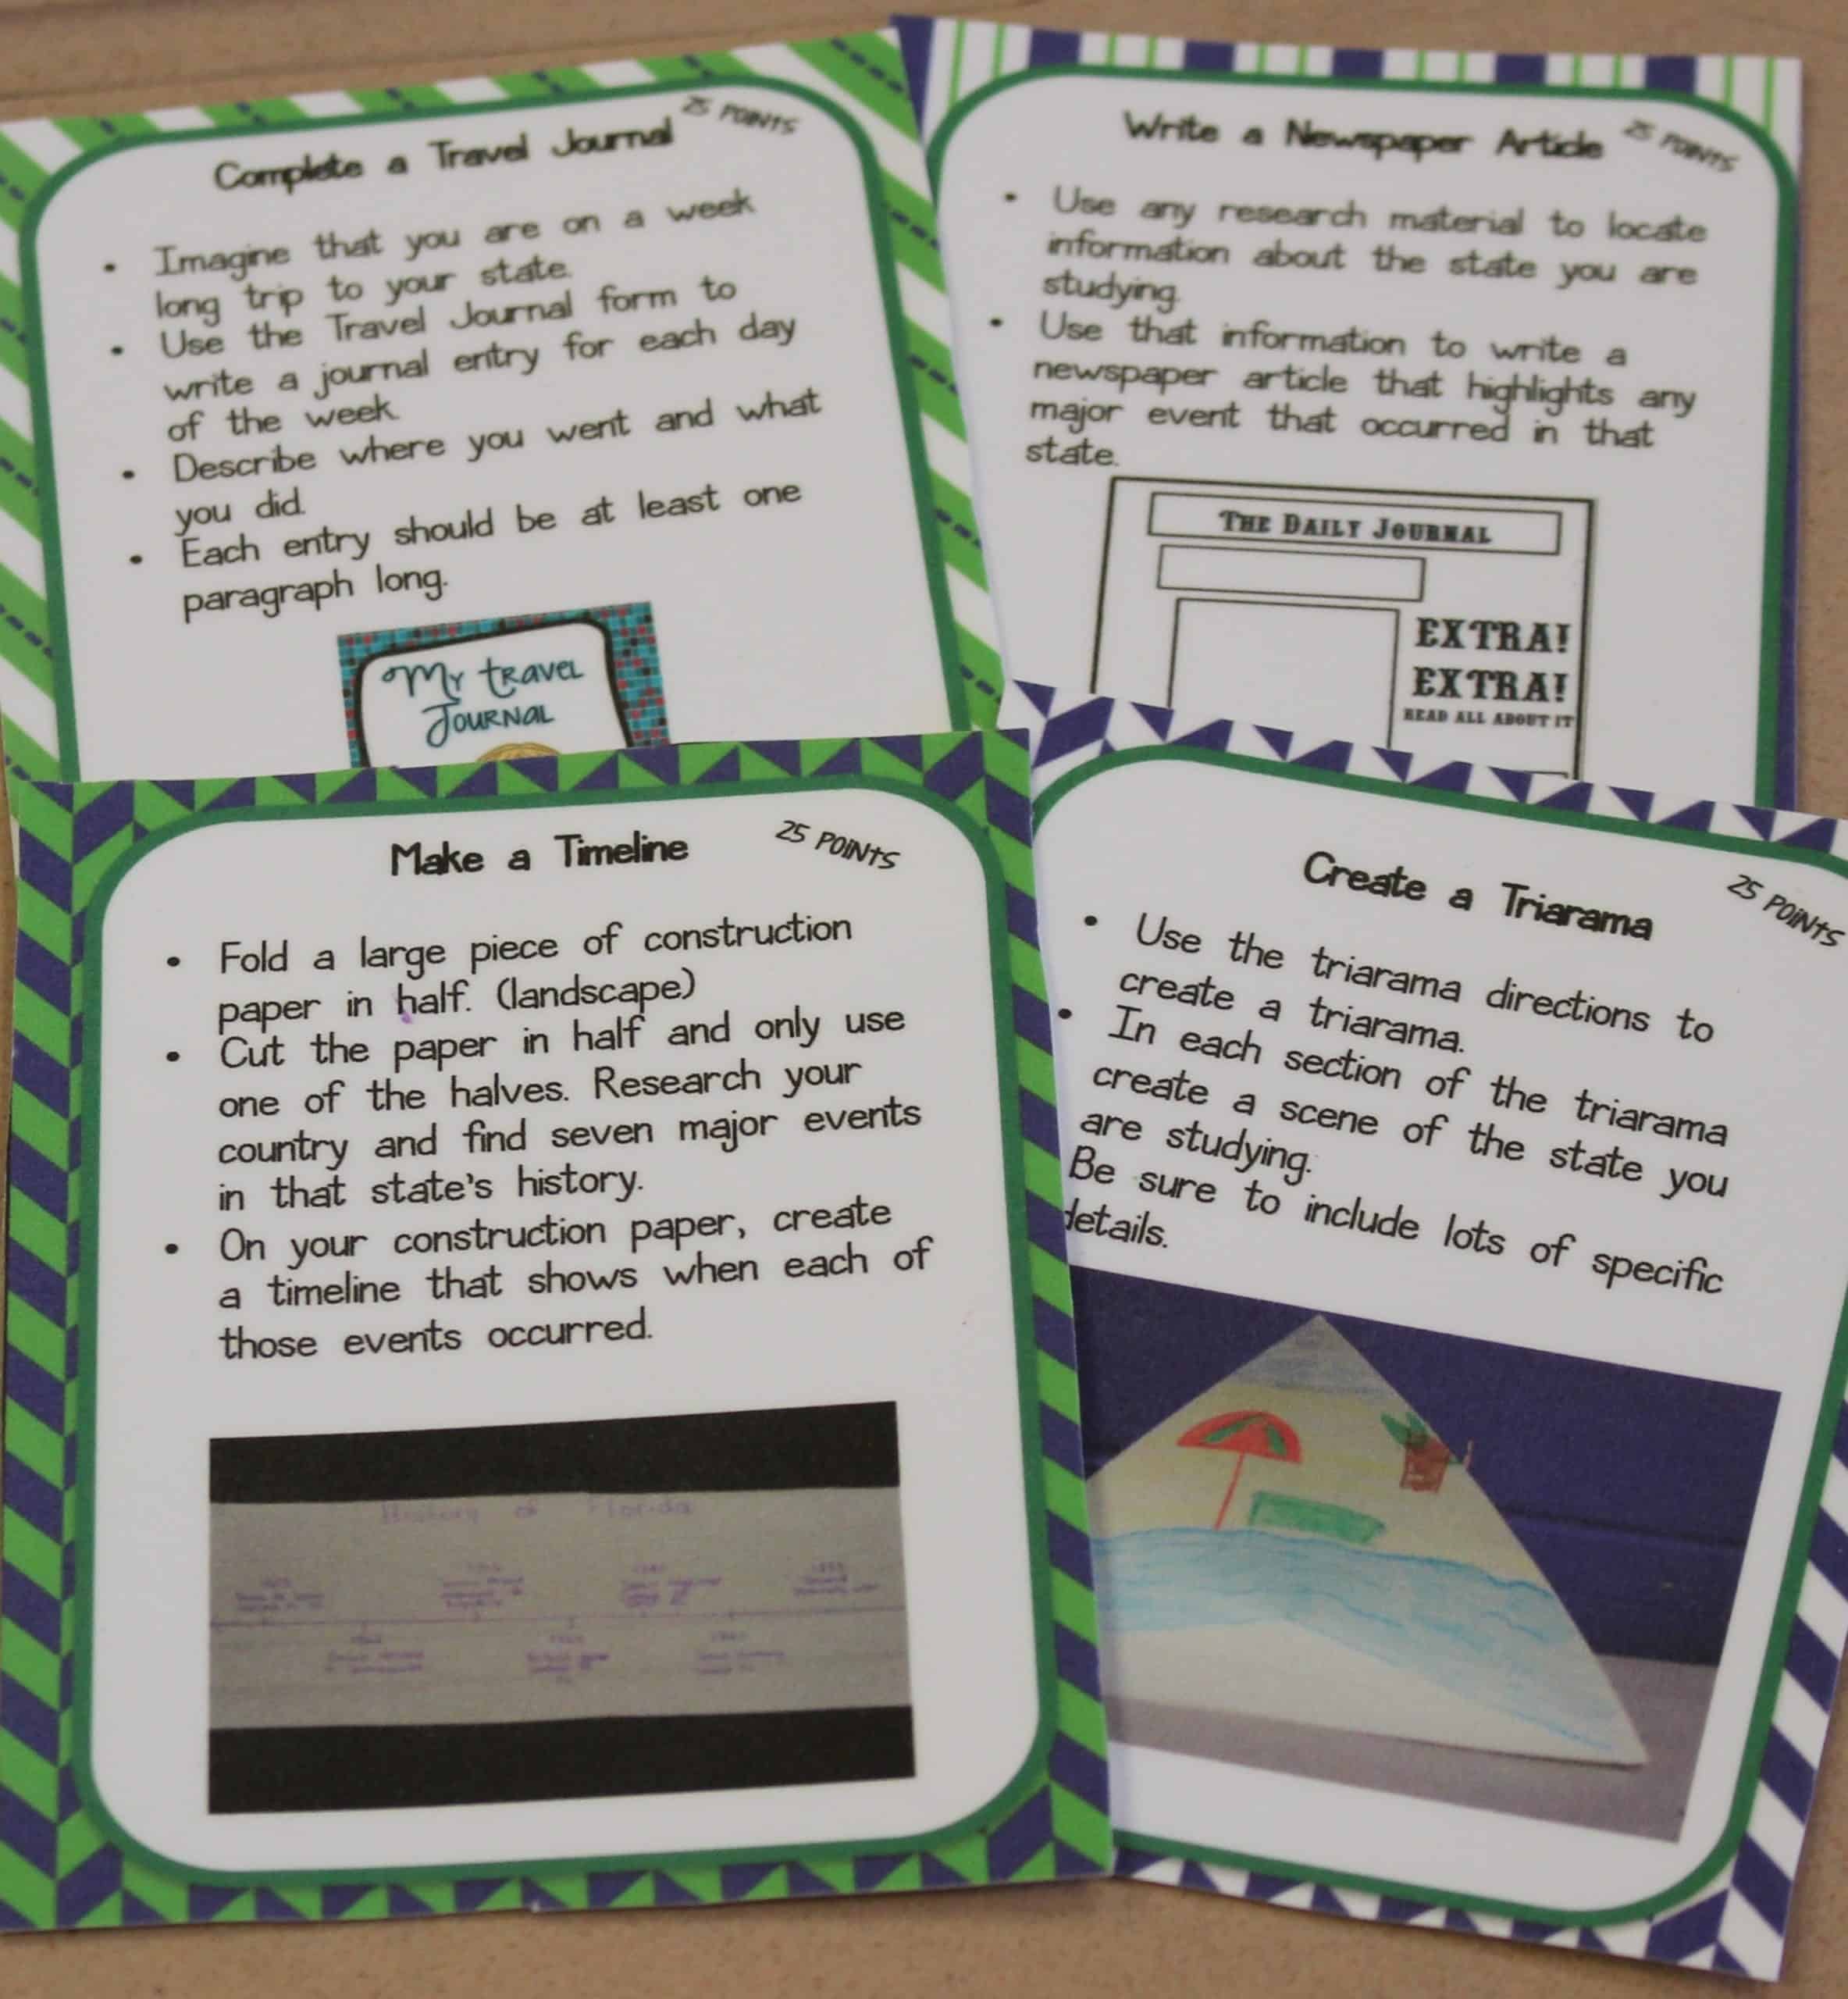 Complete a Travel Journal
25 POINTS
Imagine that you are on a week
long trip to your state.
Use the Travel Journal form to
write a journal entry for each day
of the week.
Describe where you went and what
you did.
Each entry should be at least one
paragraph long.
My travel
Journal
Write a Newspaper Article
25 POINTS
Use any research material to locate
information about the state you are
studying.
Use that information to write a
newspaper article that highlights any
major event that occurred in that
state.
THE DAILY JOURNAL
EXTRA!
EXTRA!
READ ALL ABOUT IT
Make a Timeline
25 POINTS
Fold a large piece of construction
paper in half. (landscape)
Cut the paper in half and only use
one of the halves. Research your
country and find seven major events
in that state's history.
On your construction paper, create
a timeline that shows when each of
those events occurred.
History of Florida
Create a Triarama
25 POINTS
Use the triarama directions to
create a triarama.
In each section of the triarama
create a scene of the state you
are studying.
Be sure to include lots of specific
details.